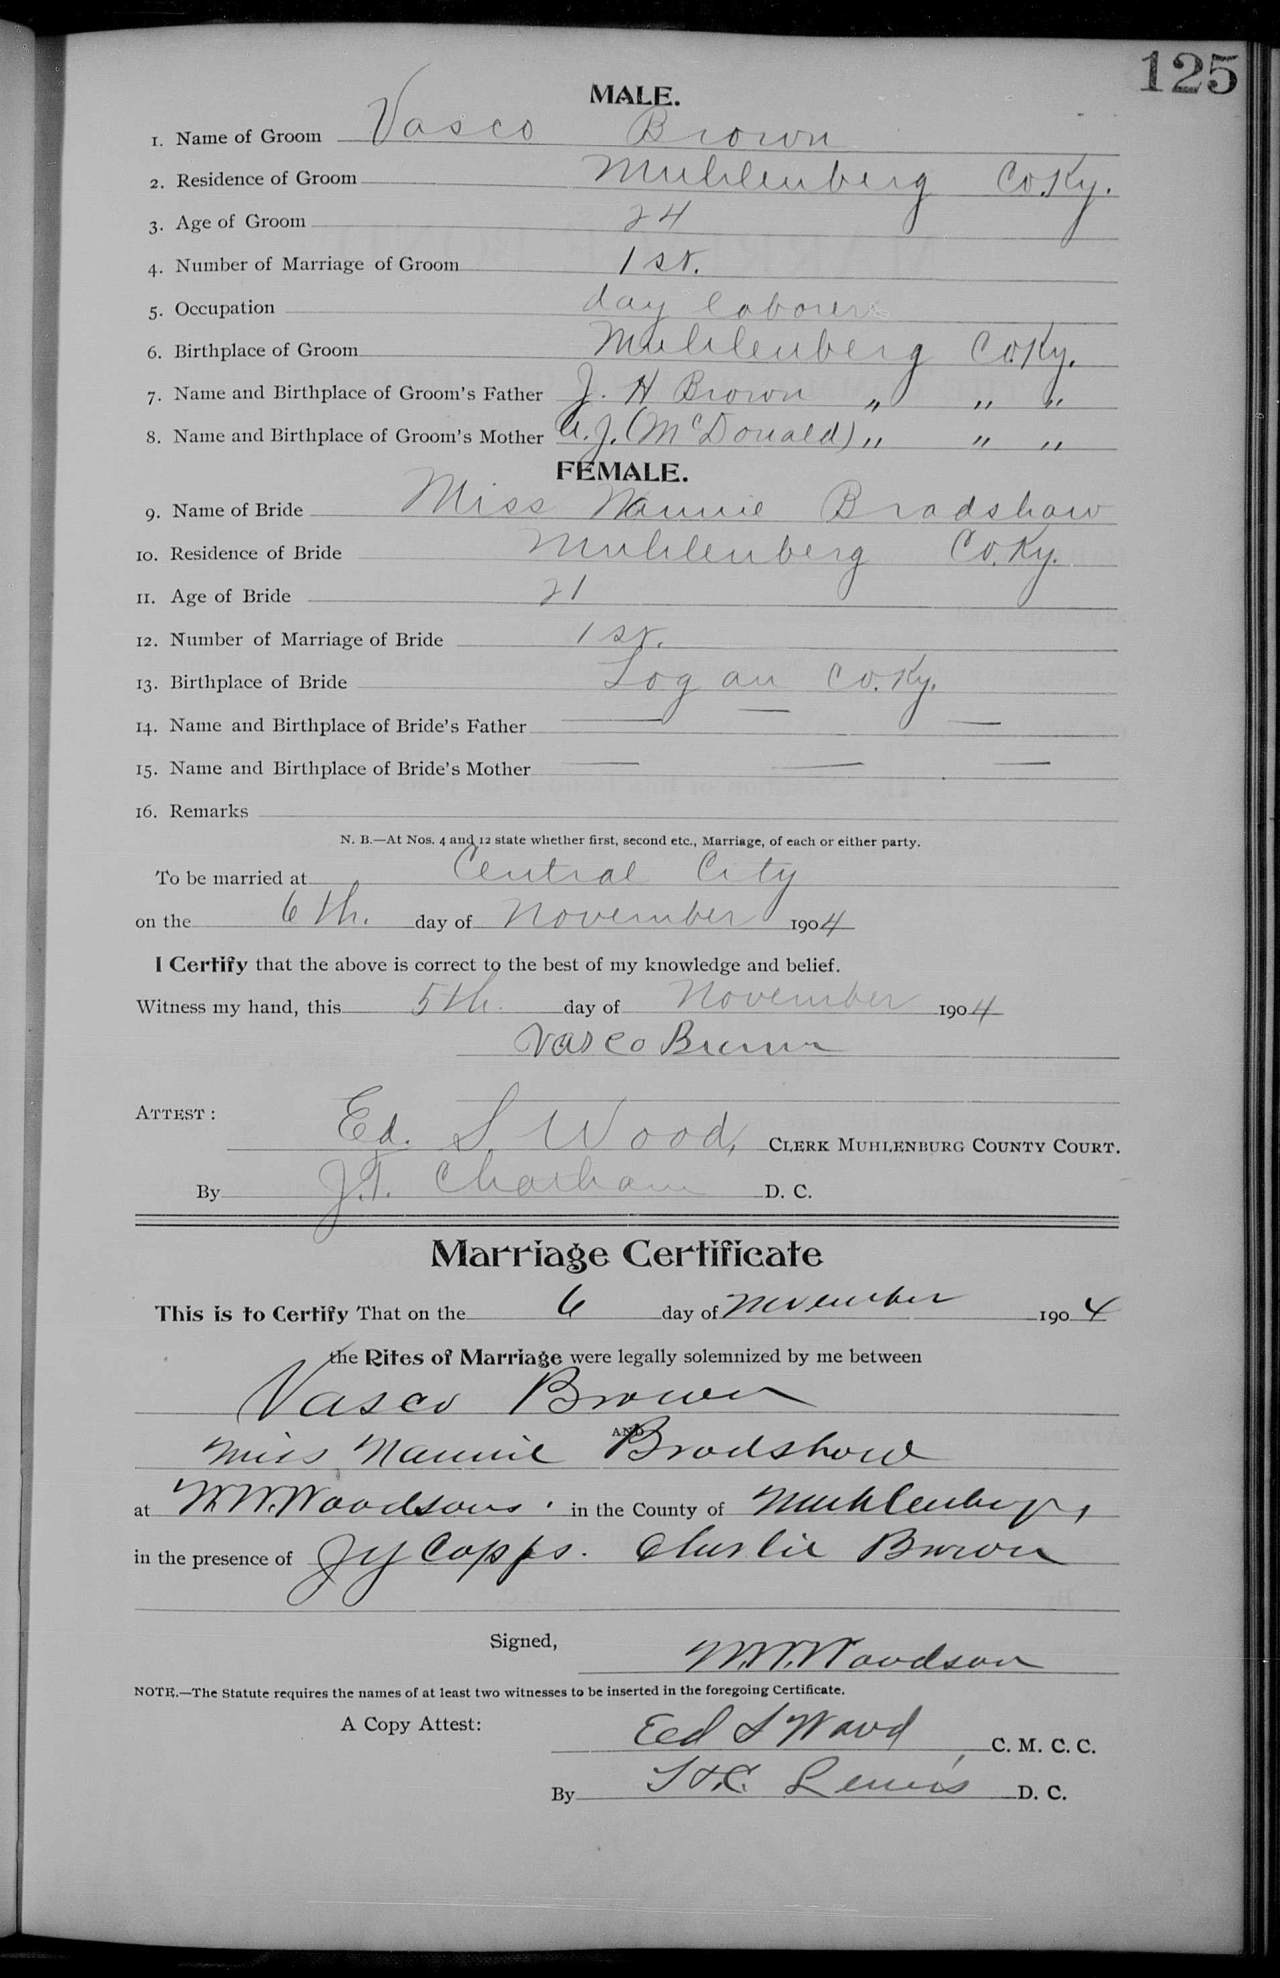 125
MALE.
1. Name of Groom Vasco Brown
2. Residence of Groom Muhlenberg Co. Ky.
3. Age of Groom 24
4. Number of Marriage of Groom 1st.
5. Occupation day laborer
6. Birthplace of Groom Muhlenberg Co. Ky.
7. Name and Birthplace of Groom's Father J. H Brown " " "
8. Name and Birthplace of Groom's Mother A. J. (McDonald) " " "
FEMALE.
9. Name of Bride Miss Nannie Bradshaw
10. Residence of Bride Muhlenberg Co. Ky.
11. Age of Bride 21
12. Number of Marriage of Bride 1st.
13. Birthplace of Bride Logan Co. Ky.
14. Name and Birthplace of Bride's Father — — —
15. Name and Birthplace of Bride's Mother — — —
16. Remarks
N. B.—At Nos. 4 and 12 state whether first, second etc., Marriage, of each or either party.
To be married at Central City
on the 6th. day of November 1904
I Certify that the above is correct to the best of my knowledge and belief.
Witness my hand, this 5th. day of November 1904
Vasco Brown
ATTEST:
Ed. S. Wood, CLERK MUHLENBURG COUNTY COURT.
By J.T. Chatham D. C.
Marriage Certificate
This is to Certify That on the 6 day of November 1904
the Rites of Marriage were legally solemnized by me between
Vasco Brown
AND
Miss Nannie Bradshaw
at W.W. Woodsons. in the County of Muhlenberg,
in the presence of J Y Capps. Charlie Brown
Signed, W.W. Woodson
NOTE.—The Statute requires the names of at least two witnesses to be inserted in the foregoing Certificate.
A Copy Attest: Ed S Wood, C. M. C. C.
By Lewis D. C.